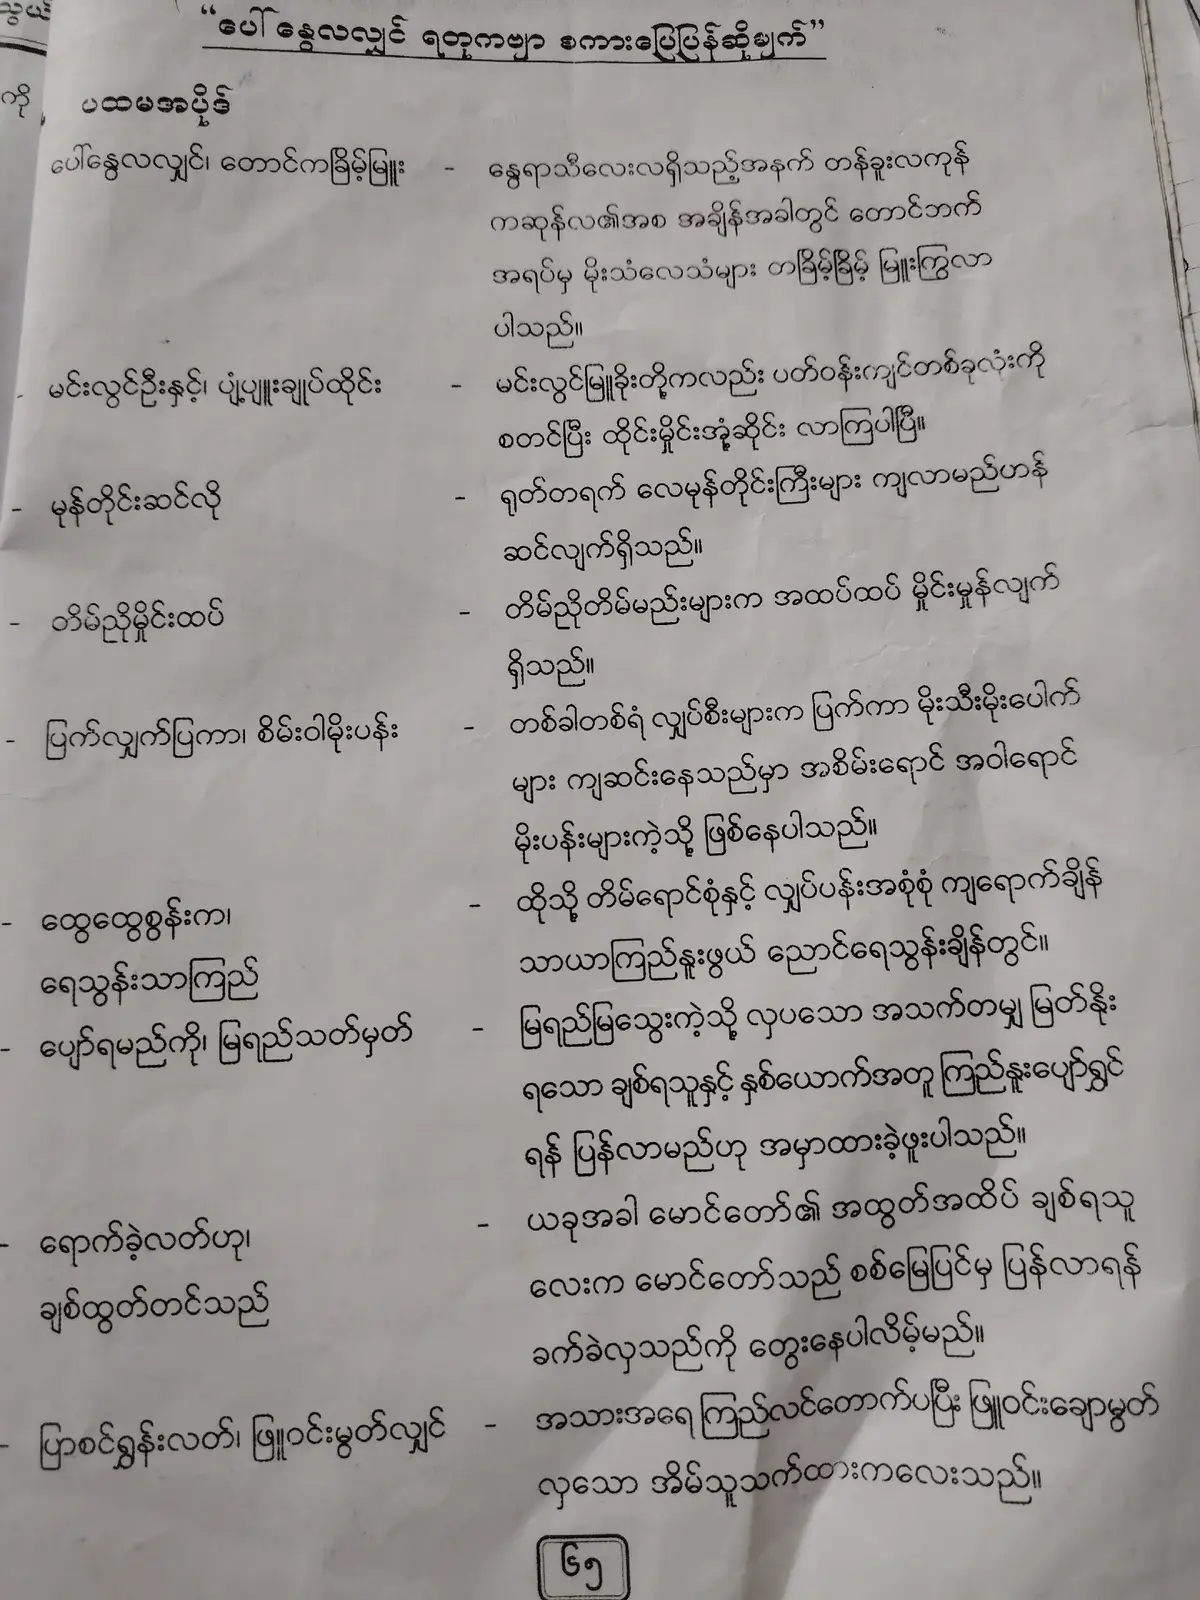 သွယ်
ကို
“ပေါ်နွေလလျှင် ရတုကဗျာ စကားပြေပြန်ဆိုချက်”
ပထမအပိုဒ်
ပေါ်နွေလလျှင်၊ တောင်ကခြိမ့်မြူး - နွေရာသီလေးလရှိသည့်အနက် တန်ခူးလကုန်
ကဆုန်လ၏အစ အချိန်အခါတွင် တောင်ဘက်
အရပ်မှ မိုးသံလေသံများ တခြိမ့်ခြိမ့် မြူးကြွလာ
ပါသည်။
- မင်းလွင်ဦးနှင့်၊ ပျံ့ပျူးချုပ်ထိုင်း - မင်းလွင်မြူခိုးတို့ကလည်း ပတ်ဝန်းကျင်တစ်ခုလုံးကို
စတင်ပြီး ထိုင်းမှိုင်းအုံ့ဆိုင်း လာကြပါပြီ။
- မုန်တိုင်းဆင်လို - ရုတ်တရက် လေမုန်တိုင်းကြီးများ ကျလာမည်ဟန်
ဆင်လျက်ရှိသည်။
- တိမ်ညိုမှိုင်းထပ် - တိမ်ညိုတိမ်မည်းများက အထပ်ထပ် မှိုင်းမှုန်လျက်
ရှိသည်။
- ပြက်လျှက်ပြကာ၊ စိမ်းဝါမိုးပန်း - တစ်ခါတစ်ရံ လျှပ်စီးများက ပြက်ကာ မိုးသီးမိုးပေါက်
များ ကျဆင်းနေသည်မှာ အစိမ်းရောင် အဝါရောင်
မိုးပန်းများကဲ့သို့ ဖြစ်နေပါသည်။
- ထွေထွေစွန်းက၊ - ထိုသို့ တိမ်ရောင်စုံနှင့် လျှပ်ပန်းအစုံစုံ ကျရောက်ချိန်
ရေသွန်းသာကြည် သာယာကြည်နူးဖွယ် ညောင်ရေသွန်းချိန်တွင်။
- ပျော်ရမည်ကို၊ မြရည်သတ်မှတ် - မြရည်မြသွေးကဲ့သို့ လှပသော အသက်တမျှ မြတ်နိုး
ရသော ချစ်ရသူနှင့် နှစ်ယောက်အတူ ကြည်နူးပျော်ရွှင်
ရန် ပြန်လာမည်ဟု အမှာထားခဲ့ဖူးပါသည်။
- ရောက်ခဲ့လတ်ဟု၊ - ယခုအခါ မောင်တော်၏ အထွတ်အထိပ် ချစ်ရသူ
ချစ်ထွတ်တင်သည် လေးက မောင်တော်သည် စစ်မြေပြင်မှ ပြန်လာရန်
ခက်ခဲလှသည်ကို တွေးနေပါလိမ့်မည်။
- ပြာစင်ရွှန်းလတ်၊ ဖြူဝင်းမွတ်လျှင် - အသားအရေ ကြည်လင်တောက်ပပြီး ဖြူဝင်းချောမွတ်
လှသော အိမ်သူသက်ထားကလေးသည်။
၆၅